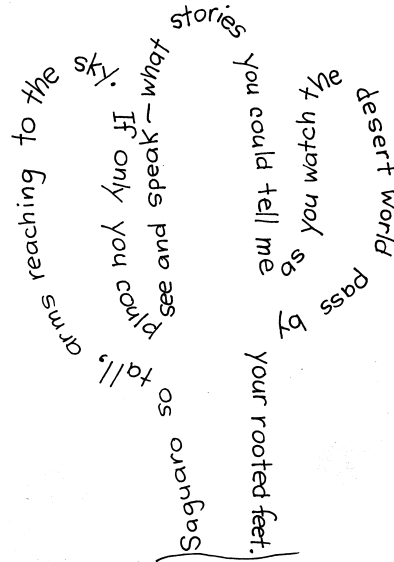 Saguaro so tall, arms reaching to the sky.
If only you could
see and speak — what stories
you could tell me
as you watch the
desert world pass by
your rooted feet.